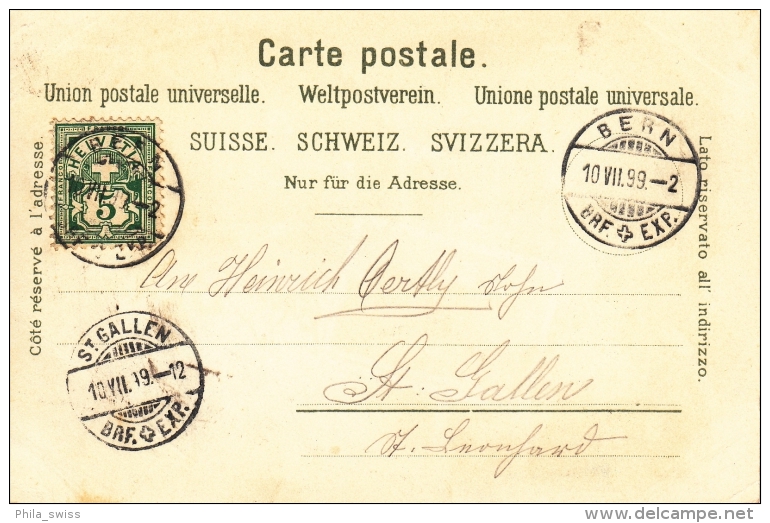 Carte postale.
Union postale universelle. Weltpostverein. Unione postale universale.
SUISSE. SCHWEIZ. SVIZZERA.
Nur für die Adresse.
Côté réservé à l'adresse.
Lato riservato all' indirizzo.
HELVETIA
5
BERN
10 VII.99.-2
BRF. EXP.
An Heinrich Oertly Sohn
St. Gallen
St. Leonhard
ST GALLEN
10 VII. 99.-12
BRF. EXP.
Phila_swiss
delcampe.net